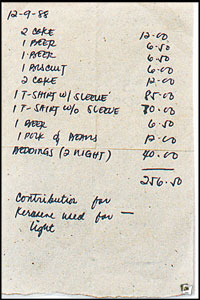 12-9-88
2 COKE 12.00
1 BEER 6.50
1 BEER 6.50
1 6.00
2 COKE 12.00
1 T-SHIRT W/ SLEEVE 85.00
1 T-SHIRT W/O SLEEVE 70.00
1 BEER 6.50
1 PORK & BEANS 12.00
BEDDINGS (2 NIGHT) 40.00
256.50
Contribution for
Kerosene used for —
light